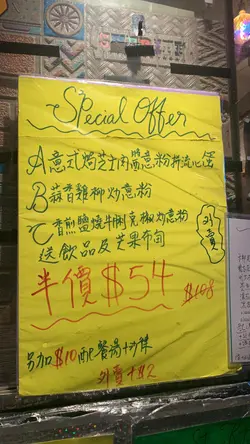 Special Offer
A意式焗芝士肉醬意粉拼流心蛋
B蒜香雞柳炒意粉
C香煎鹽燒牛脷克柳炒意粉
送飲品及芒果布甸
外賣
半價$54
$108
另加$10配餐湯
外賣+$2